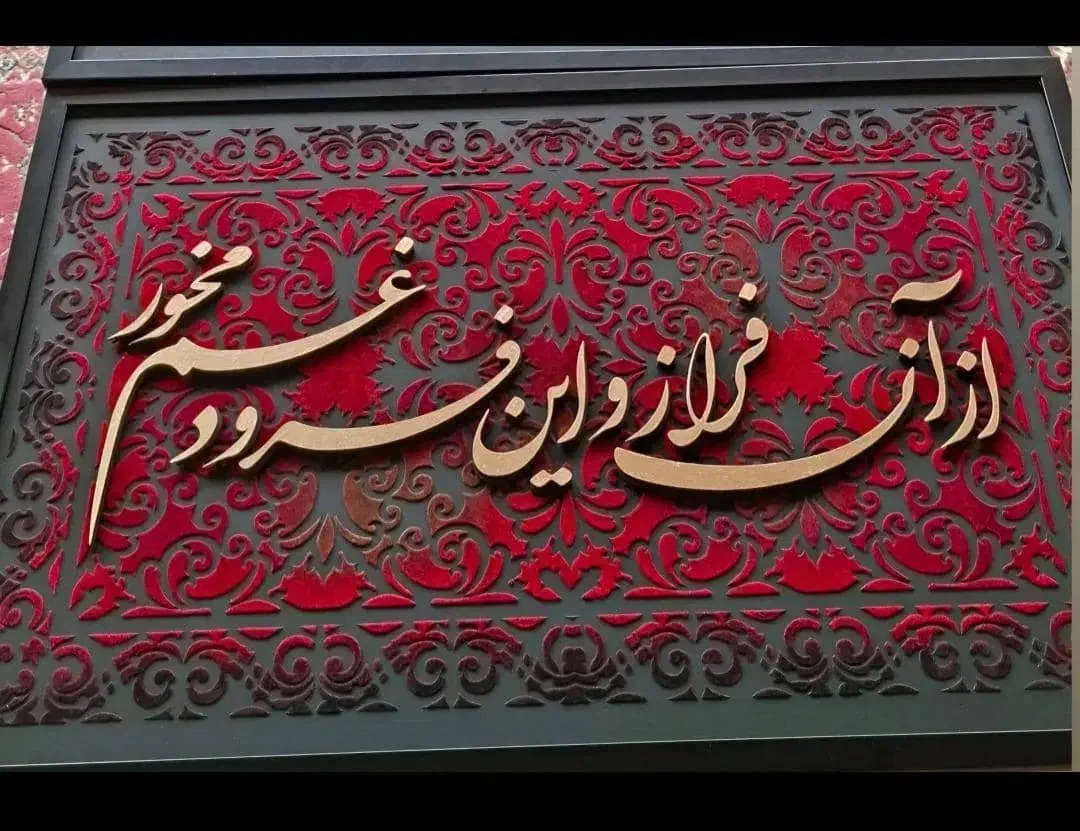 از آن فراز و این فرود غم مخور